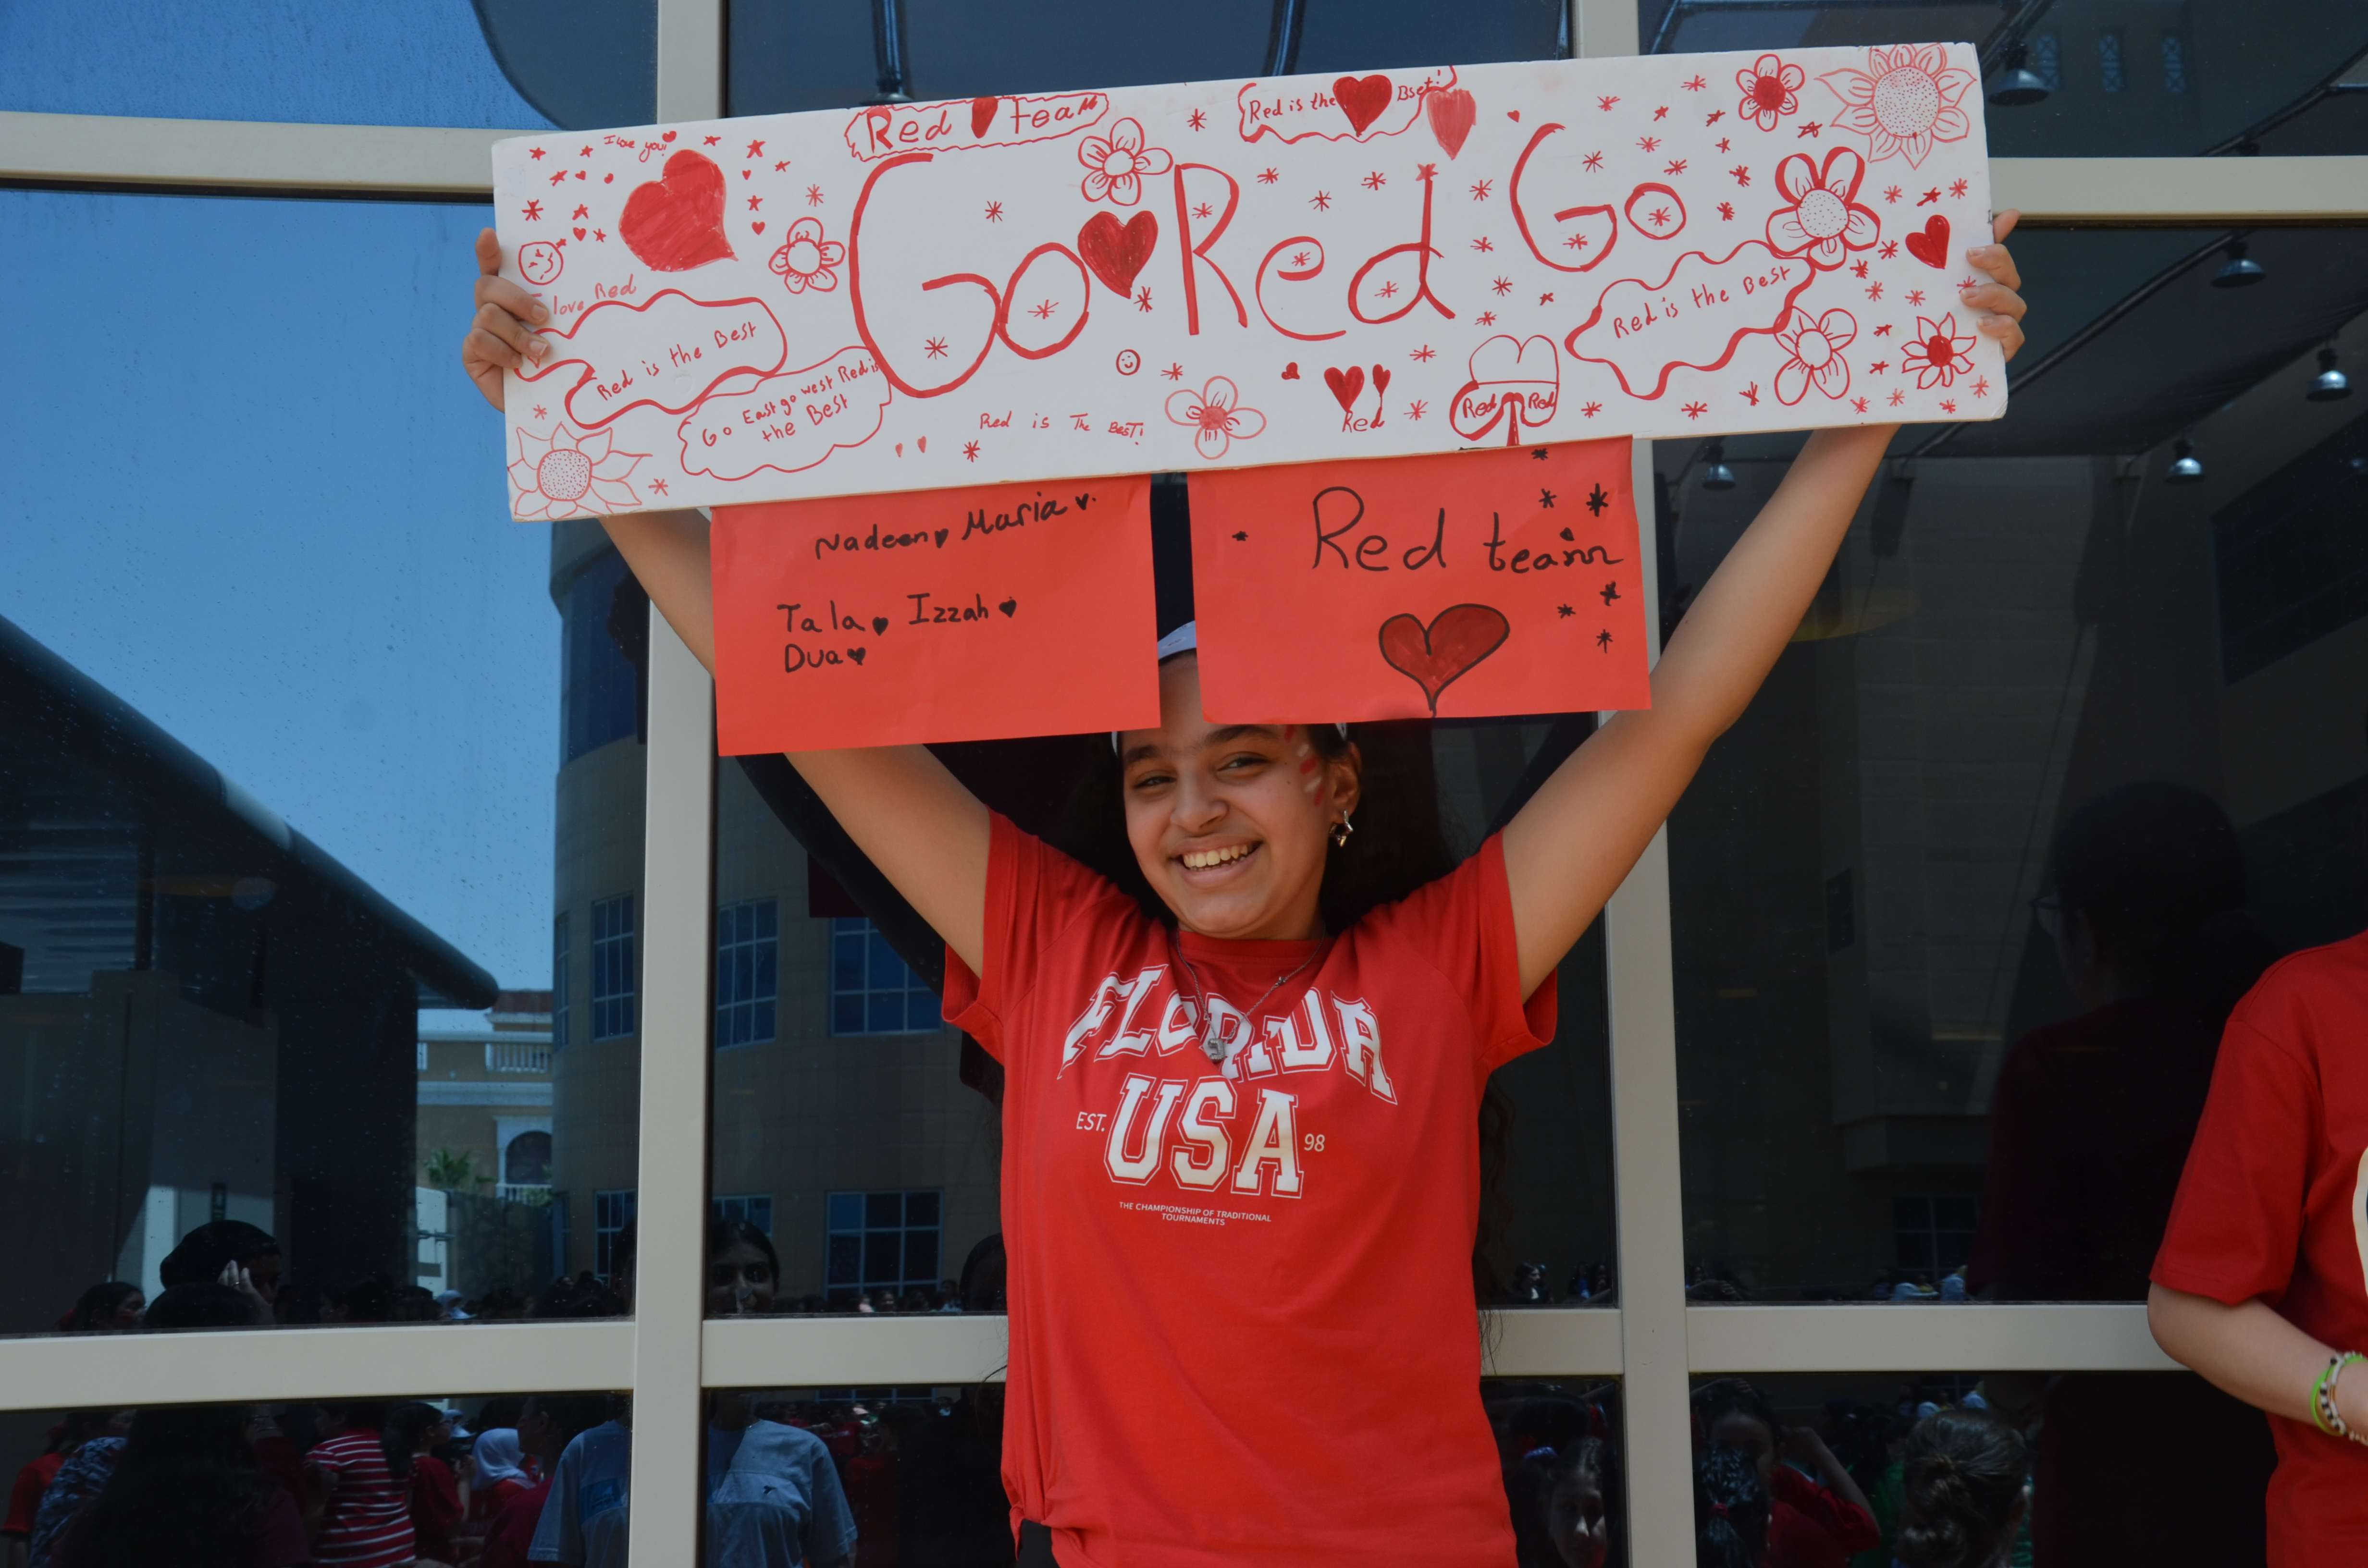 I love you!
Red team
Red is the Bset!
Go Red Go
I love Red
Red is the Best
Red is the Best
Go East go west Red is
the Best
Red is The BesT!
Red
Red Red
Nadeen Maria
Tala Izzah
Dua
Red team
FLORIDA
EST. USA 98
THE CHAMPIONSHIP OF TRADITIONAL
TOURNAMENTS